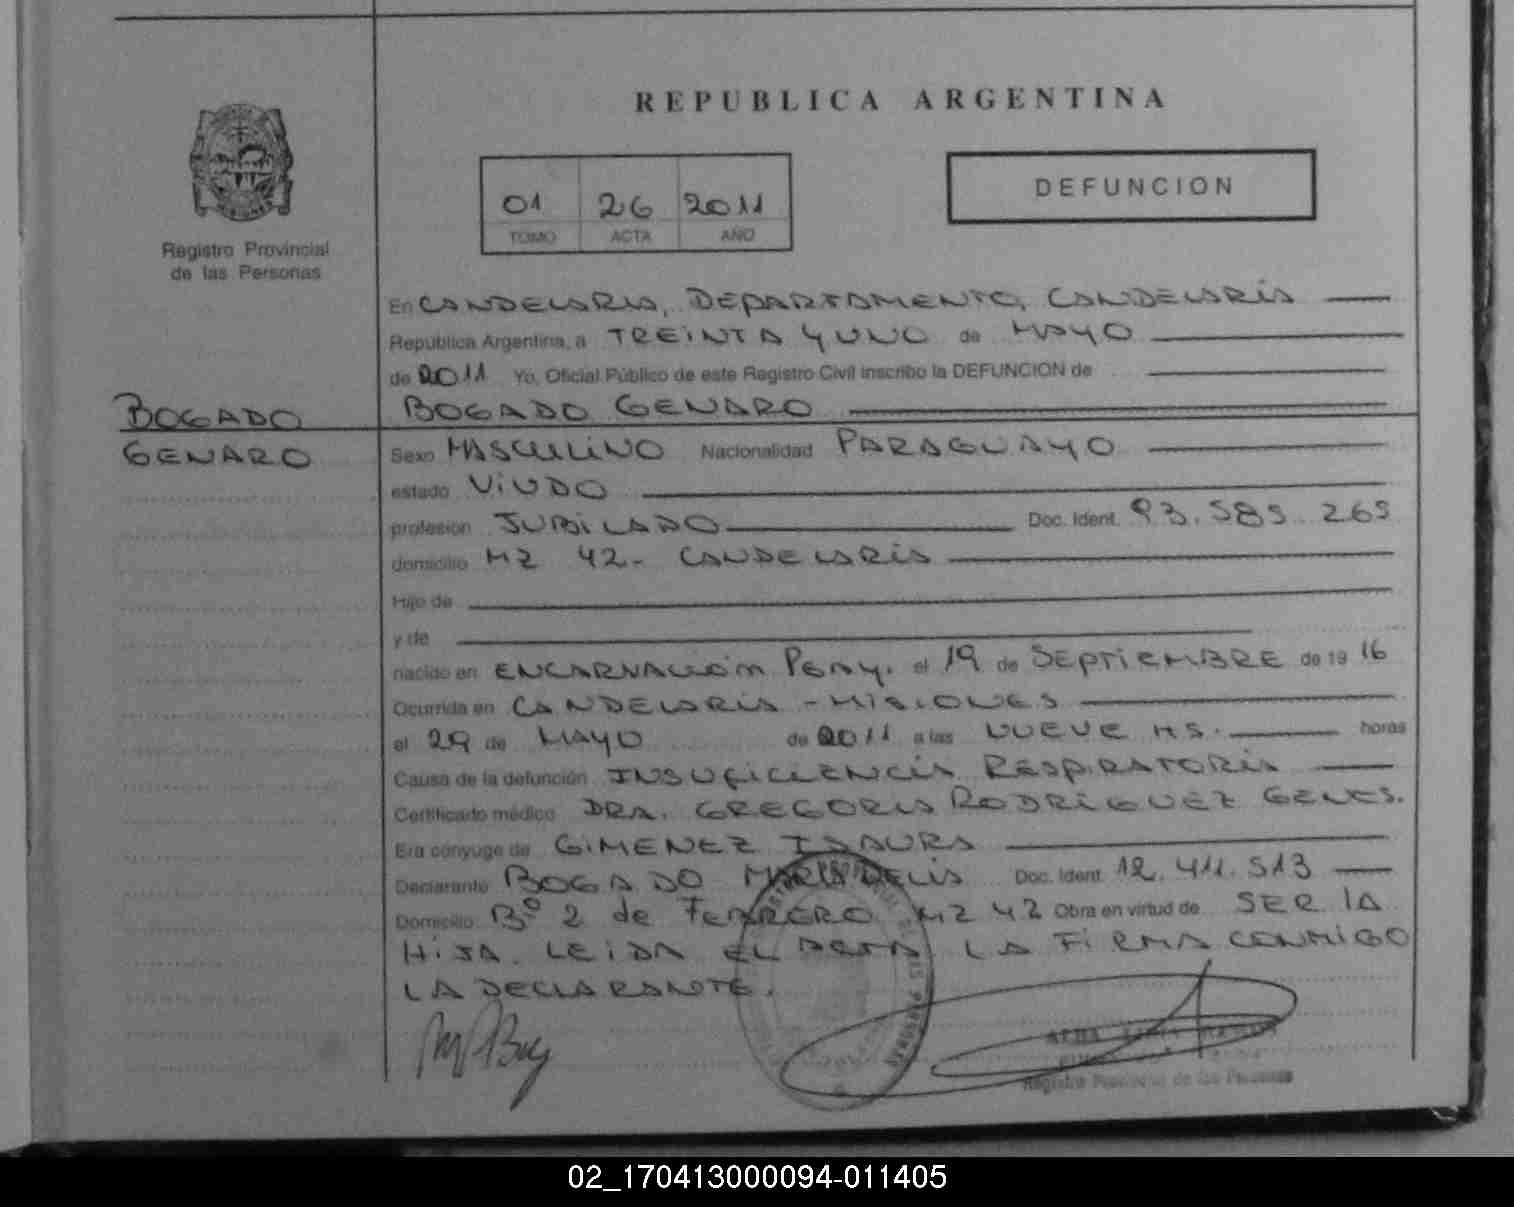 REPUBLICA ARGENTINA
01 26 2011
TOMO ACTA AÑO
DEFUNCION
Registro Provincial
de las Personas
BOGADO
GENARO
En CANDELARIA, DEPARTAMENTO, CANDELARIA
República Argentina, a TREINTA Y UNO de MAYO
de 2011 Yo, Oficial Público de este Registro Civil inscribo la DEFUNCION de
BOGADO GENARO
Sexo MASCULINO Nacionalidad PARAGUAYO
estado VIUDO
profesion JUBILADO Doc. Ident. 93.585.265
domicilio MZ 42- CANDELARIA
Hijo de
y de
nacido en ENCARNACIÓN PGAY. el 19 de SEPTIEMBRE de 19 16
Ocurrida en CANDELARIA - MISIONES
el 29 de MAYO de 2011 a las NUEVE HS. horas
Causa de la defunción INSUFICIENCIA RESPIRATORIA
Certificado médico DRA. GREGORIA RODRIGUEZ GENES.
Era cónyuge de GIMENEZ ISAURA
Declarante BOGADO MARIA DELIA Doc. Ident. 12.411.513
Domicilio Bº 2 de FEBRERO MZ 42 Obra en virtud de SER LA
HIJA. LEIDA EL ACTA LA FIRMA CONMIGO
LA DECLARANTE.
Registro Provincial de las Personas
02_170413000094-011405